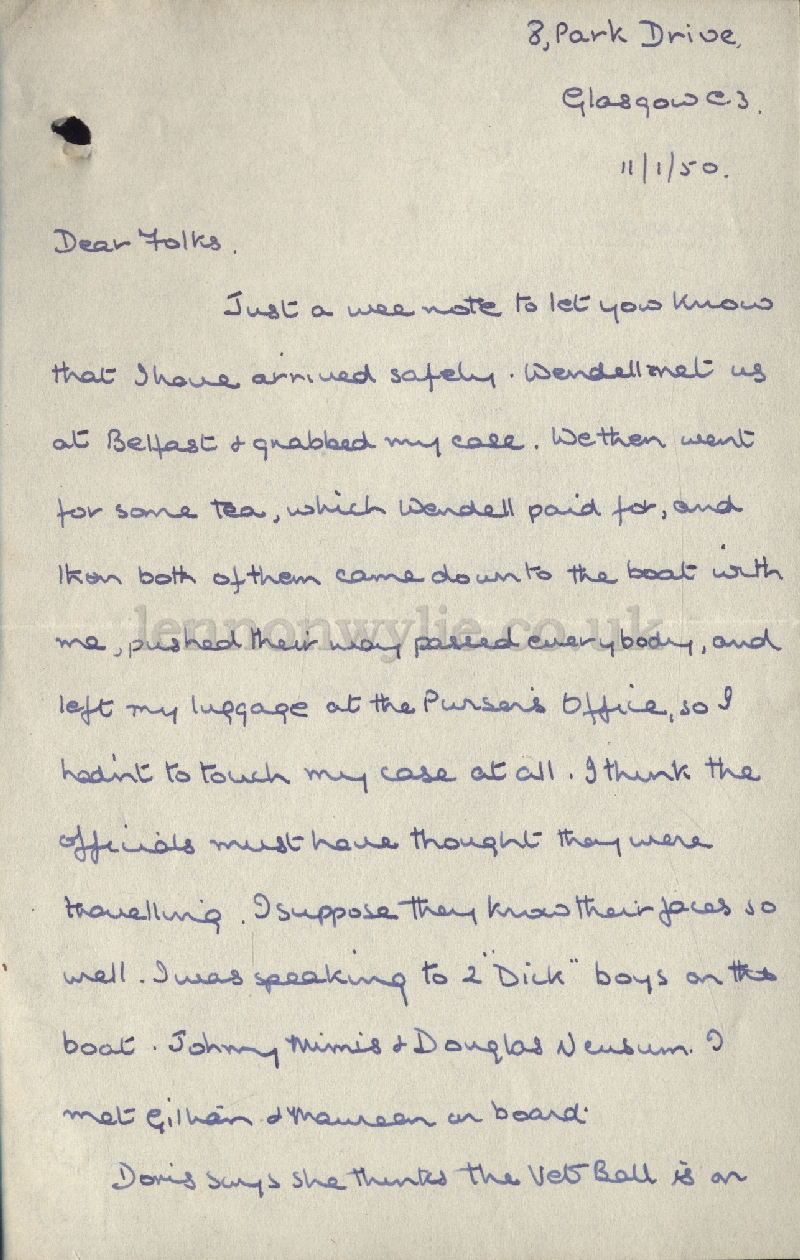 8, Park Drive,
Glasgow C3.
11/1/50.
Dear Folks.
Just a wee note to let you know
that I have arrived safely. Wendell met us
at Belfast & grabbed my case. We then went
for some tea, which Wendell paid for, and
both of them came down to the boat with
me, pushed their way passed everybody, and
lennonwylie.co.uk
left my luggage at the Purser's Office, so I
hadn't to touch my case at all. I think the
officials must have thought they were
travelling. I suppose they know their faces so
well. I was speaking to 2 "Dick" boys on the
boat. Johnny & Douglas I
met Gillian & Maureen on board.
Doris says she thinks the Vet Ball is on